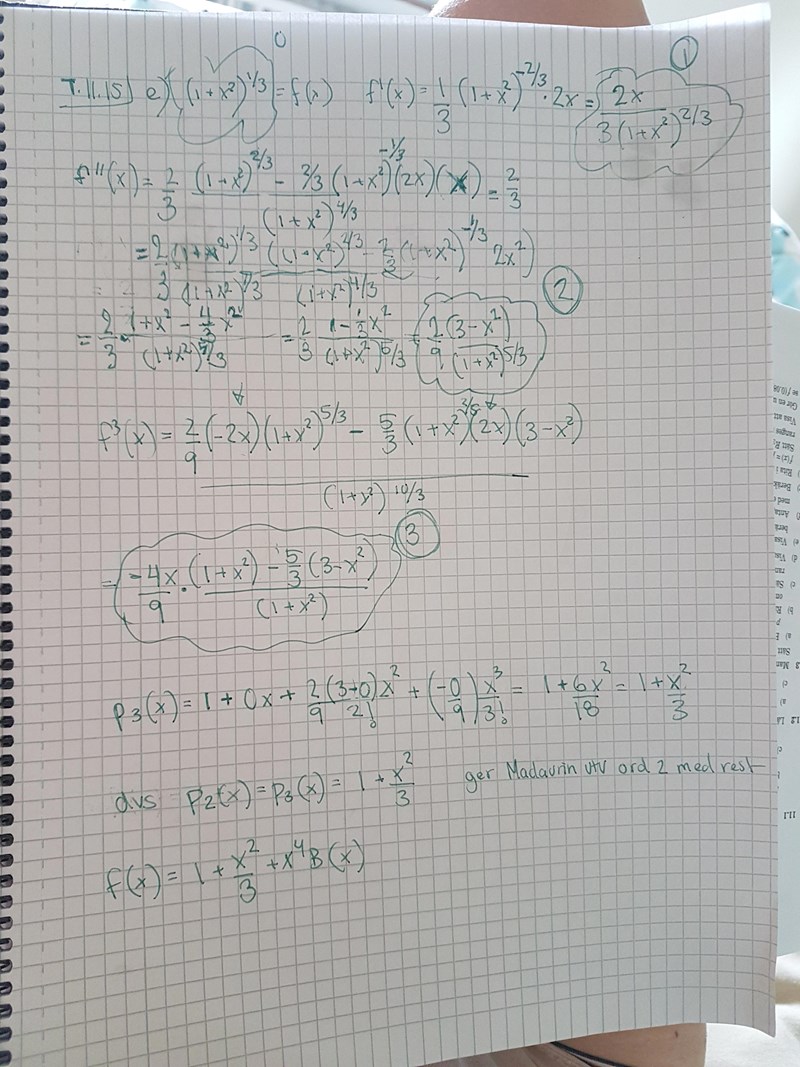 T.11.15) e) (1+x²)^1/3 = f(x) f'(x) = 1/3 (1+x²)^-2/3 · 2x = 2x / 3(1+x²)^2/3
0
1
f''(x) = 2/3 (1+x²)^2/3 - 2/3 (1+x²)^-1/3 (2x)(x) / (1+x²)^4/3 = 2/3
= 2/3 (1+x²)^1/3 ((1+x²)^2/3 - 2/3 (1+x²)^-1/3 2x²) / (1+x²)^1/3 (1+x²)^4/3
= 2/3 · 1+x² - 4/3 x² / (1+x²)^5/3 = 2/3 1 - 1/3 x² / (1+x²)^5/3 = 2/9 (3-x²) / (1+x²)^5/3
2
f³(x) = 2/9 (-2x)(1+x²)^5/3 - 5/3 (1+x²)^2/3 (2x)(3-x²) / (1+x²)^10/3
3
= -4x/9 · (1+x²) - 5/3 (3-x²) / (1+x²)
p₃(x) = 1 + 0x + 2/9 (3+0)/2! x² + (-0/9) x³/3! = 1 + 6x²/18 = 1 + x²/3
dvs p₂(x) = p₃(x) = 1 + x²/3 ger Maclaurin utv ord 2 med rest
f(x) = 1 + x²/3 + x⁴B(x)